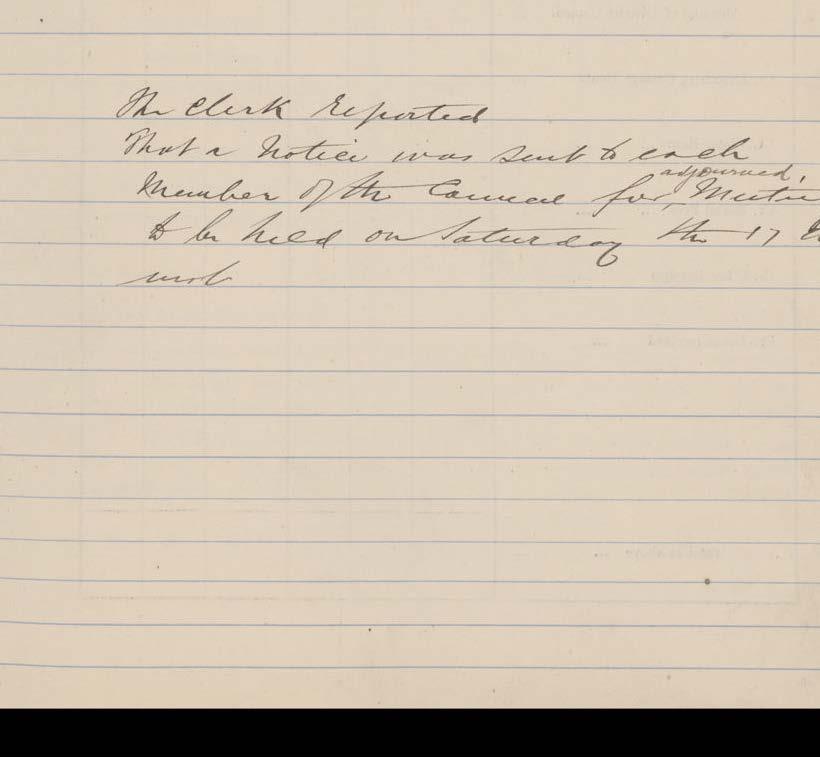 The Clerk Reported
That a Notice was sent to each
adjourned,
Member of the Council for, Meetin
to be held on Saturday the 17
inst